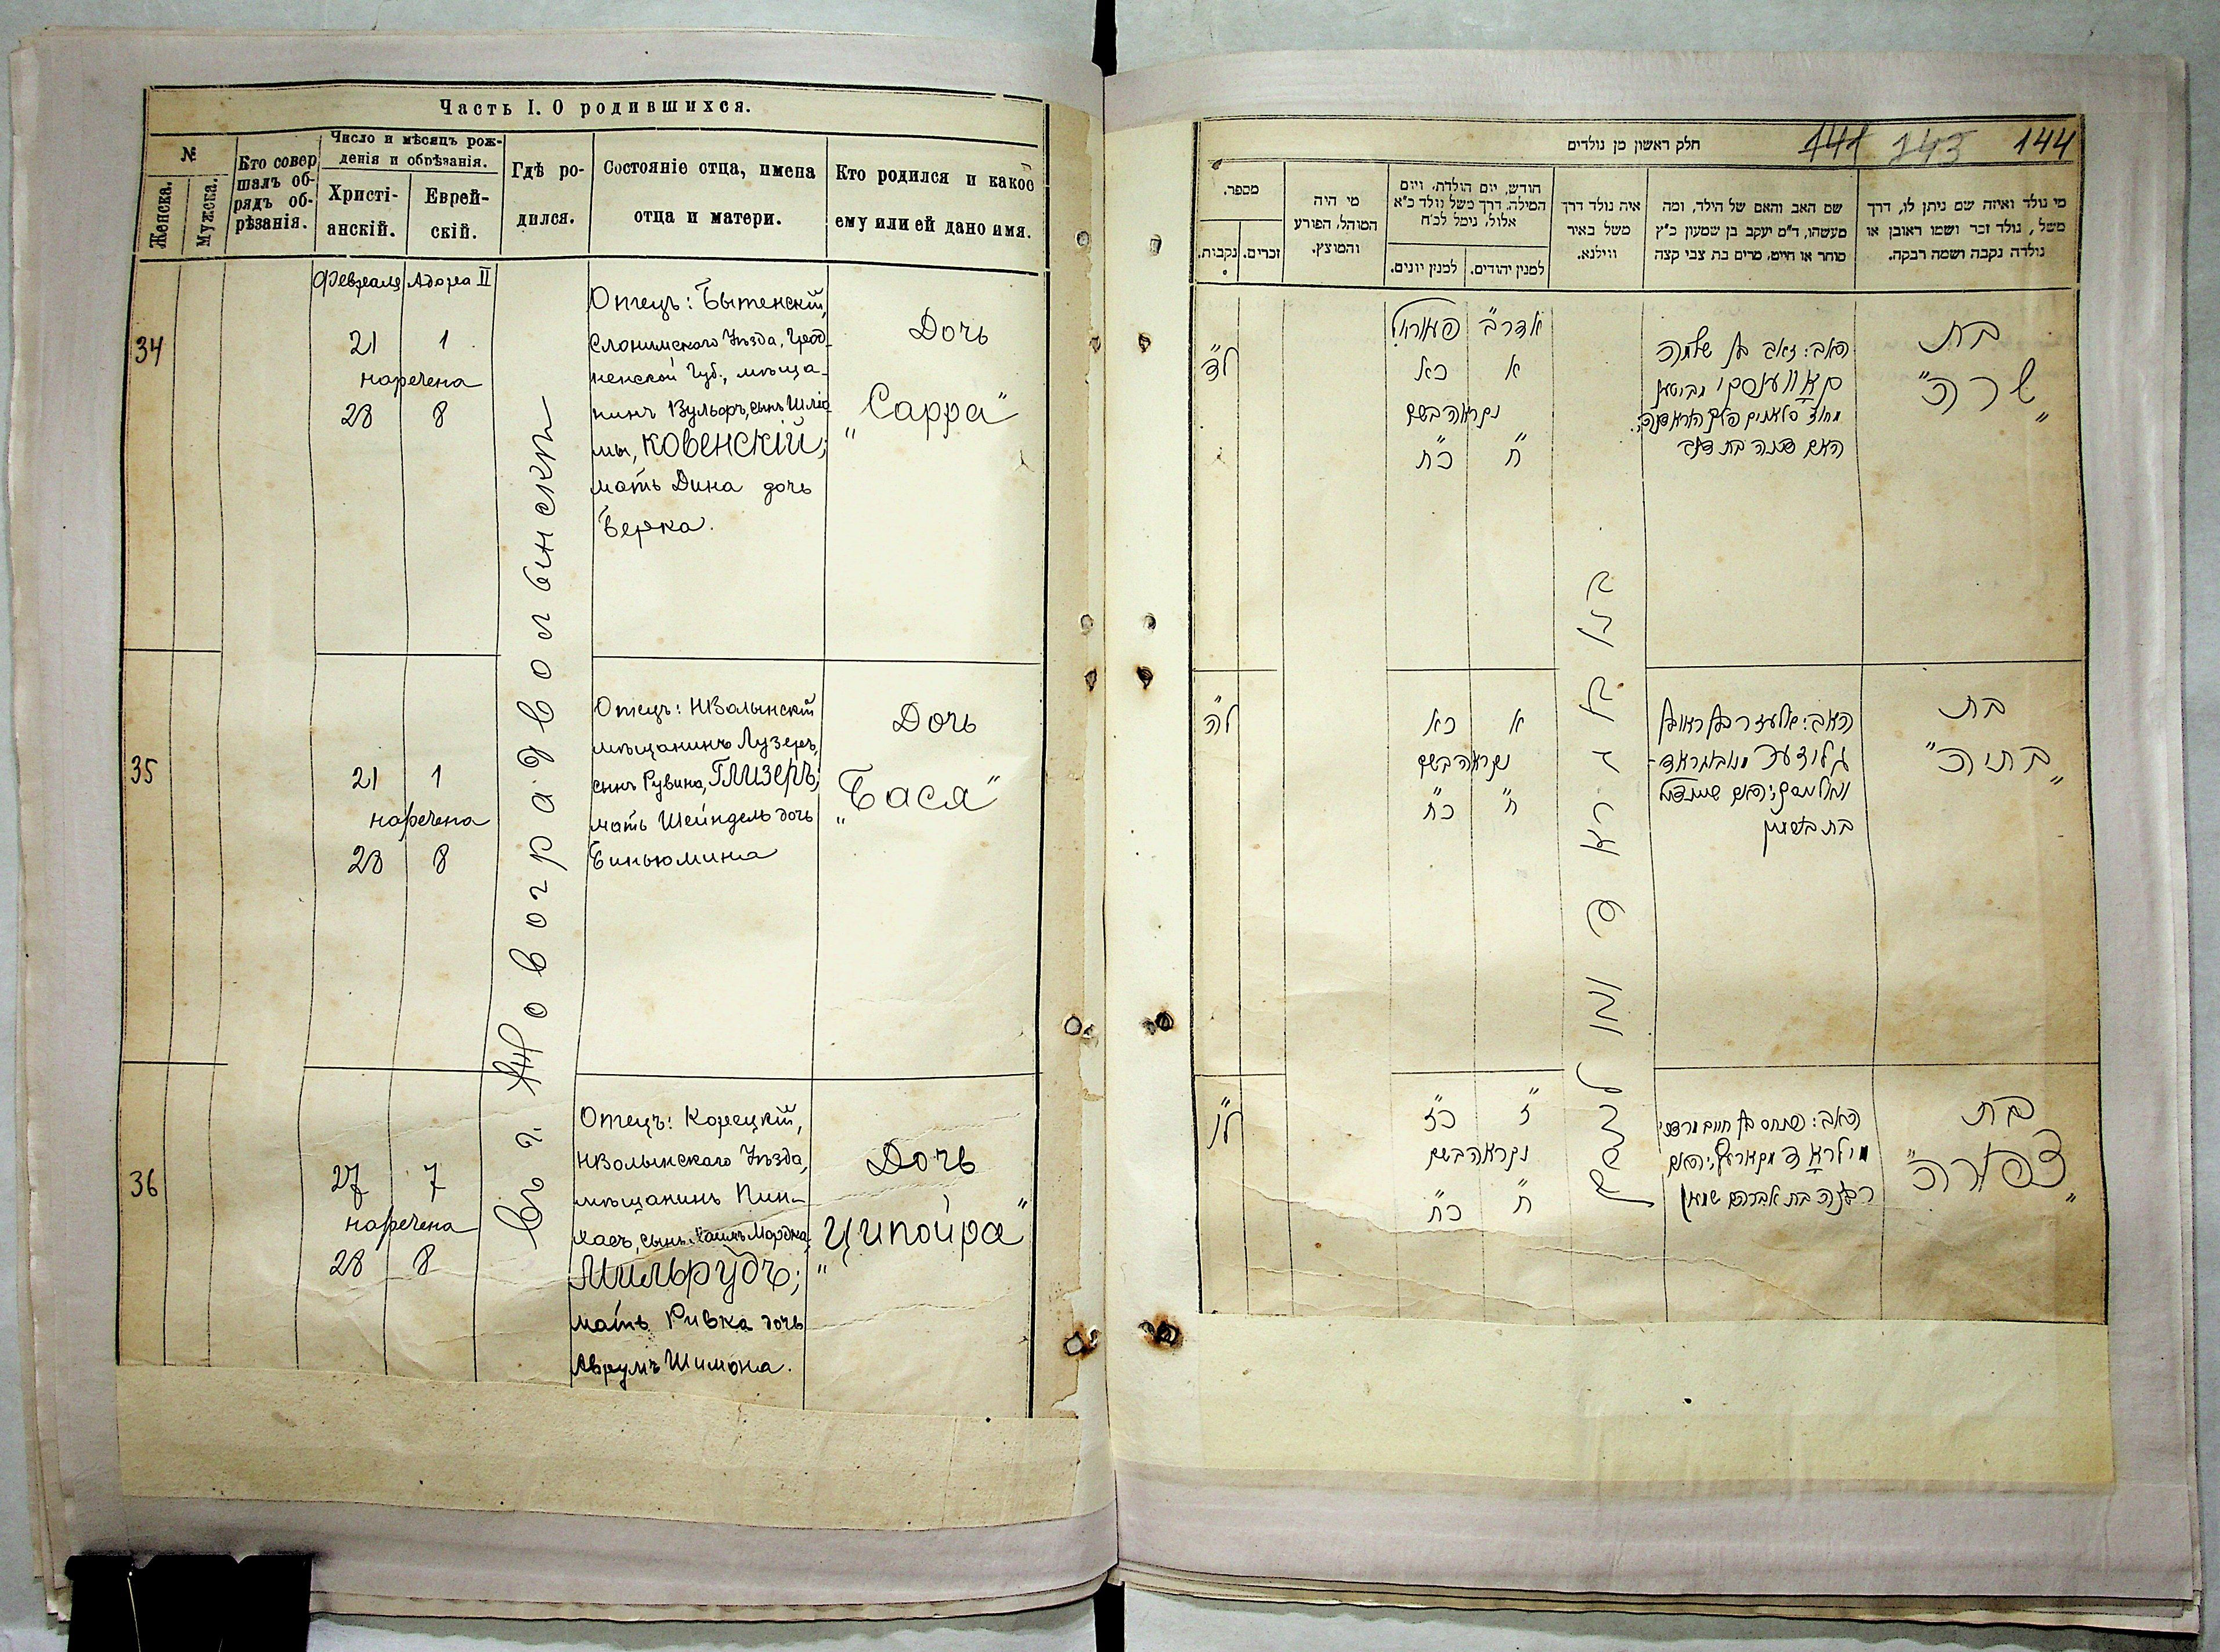 Часть I. О родившихся.
№
Женска.
Мужска.
Кто совер
шалъ об-
рядъ об-
рѣзанія.
Число и мѣсяцъ рож-
денія и обрѣзанія.
Христі-
анскій.
Еврей-
скій.
Гдѣ ро-
дился.
Состояніе отца, имена
отца и матери.
Кто родился и какое
ему или ей дано имя.
Февраля Адора II
34
21 1
наречена
28 8
Отецъ: Бытенскій,
Слонимскаго Уѣзда, Грод-
ненской Губ., мѣща-
нинъ Вульфъ, сынъ Шліо
мы, Ковенскій;
мать Дина дочь
Берка.
Дочь
„Сарра"
въ г. Новоградволынскѣ
35
21 1
наречена
28 8
Отецъ: НВолынскій
мѣщанинъ Лузеръ,
сынъ Рувина, Глизеръ;
мать Шейндель дочь
Биньюмина
Дочь
„Бася"
36
27 7
наречена
28 8
Отецъ: Корецкій,
НВолынскаго Уѣзда,
мѣщанинъ Пин-
хасъ, сынъ Хаимъ Мордка,
Мильрудъ;
мать Ривка дочь
Аврумъ Шимона.
Дочь
„Ципойра"
חלק ראשון מן נולדים
141 143 144
מספר.
נקבות.
זכרים.
מי היה
המוהל, הפורע
והמוצץ.
חודש, יום הולדת, ויום
המילה. דרך משל נולד כ"א
אלול, נימל לכ"ח
למנין יונים.
למנין יהודים.
איה נולד דרך
משל באיר
ווילנא.
שם האב והאם של הילד, ומה
מעשהו, ד"מ יעקב בן שמעון כ"ץ
סוחר או חייט, מרים בת צבי קצה
מי נולד ואיזה שם ניתן לו, דרך
משל, נולד זכר ושמו ראובן או
נולדה נקבה ושמה רבקה.
ל"ד
אדר ב'
א כא
נקראה בשם
ח" כח"
האב: זאב בן שלמה
האם דינה בת
בת
„שרה"
ל"ה
א כא
נקראה בשם
ח" כח"
האב: אלעזר בן ראובן
בת
„בתיה"
ל"ו
ז" כז"
נקראה בשם
ח" כח"
האב: פנחס בן חיים מרדכי
רבקה בת אברהם שמעון
בת
„צפורה"